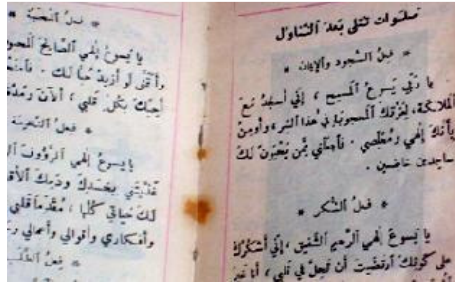 صلوات تتلى بعد التناول
* فعل السجود والإيمان *
يا ربي يسوع المسيح ، إني أسجد مع
الملائكة، لعزتك المحجوبة في هذا السر، وأومن
بأنك إلهي ومخلصي . فاجعلني ممن يحبون لك
ساجدين خاضعين .
* فعل الشكر *
يا يسوع إلهي الرحيم الشفيق ، إني أشكرك
على كونك ارتضيت أن تحل في قلبي ، أنا غير
* فعل المحبة *
يا يسوع إلهي الصالح
وأتمنى لو أزيد حبا لك .
أحبك بكل قلبي ، الآن
* فعل التقدمة *
يا يسوع إلهي الرؤوف
بجسدك ودمك
لك حياتي كلها ، مقدما قلبي
وأفكاري وأقوالي وأعمالي
* فعل